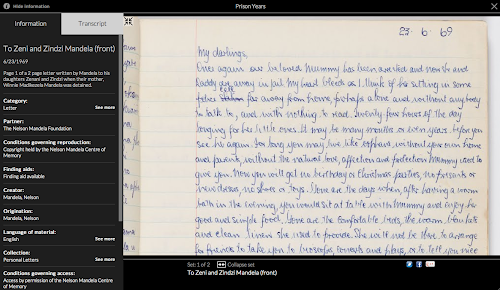 Hide Information
Prison Years
Information
Transcript
To Zeni and Zindzi Mandela (front)
6/23/1969
Page 1 of a 2 page letter written by Mandela to his
daughters Zenani and Zindzi when their mother,
Winnie Madikizela Mandela was detained.
Category:
Letter
See more
Partner:
The Nelson Mandela Foundation
Conditions governing reproduction:
Copyright held by the Nelson Mandela Centre of
Memory
Finding aids:
Finding aid available
Creator:
Mandela, Nelson
Origination:
Mandela, Nelson
Language of material:
English
See more
Collection:
Personal Letters
See more
Conditions governing access:
Access by permission of the Nelson Mandela Centre of
Memory
23 · 6 · 69
My darlings,
Once again our beloved Mummy has been arrested and now she and
Daddy are away in jail. My heart bleeds as I think of her sitting in some
police cell far away from home, perhaps alone and without anybody
to talk to, and with nothing to read. Twenty-four hours of the day
longing for her little ones. It may be many months or even years before you
see her again. For long you may live like orphans without your own home
and parents, without the natural love, affection and protection Mummy used to
give you. Now you will get no birthday or Christmas parties, no presents or
new dresses, no shoes or toys. Gone are the days when, after having a warm
bath in the evening, you would sit at table with Mummy and enjoy her
good and simple food. Gone are the comfortable beds, the warm blankets
and clean linen she used to provide. She will not be there to arrange
for friends to take you to bioscopes, concerts and plays, or to tell you nice
Set: 1 of 2
Collapse set
To Zeni and Zindzi Mandela (front)